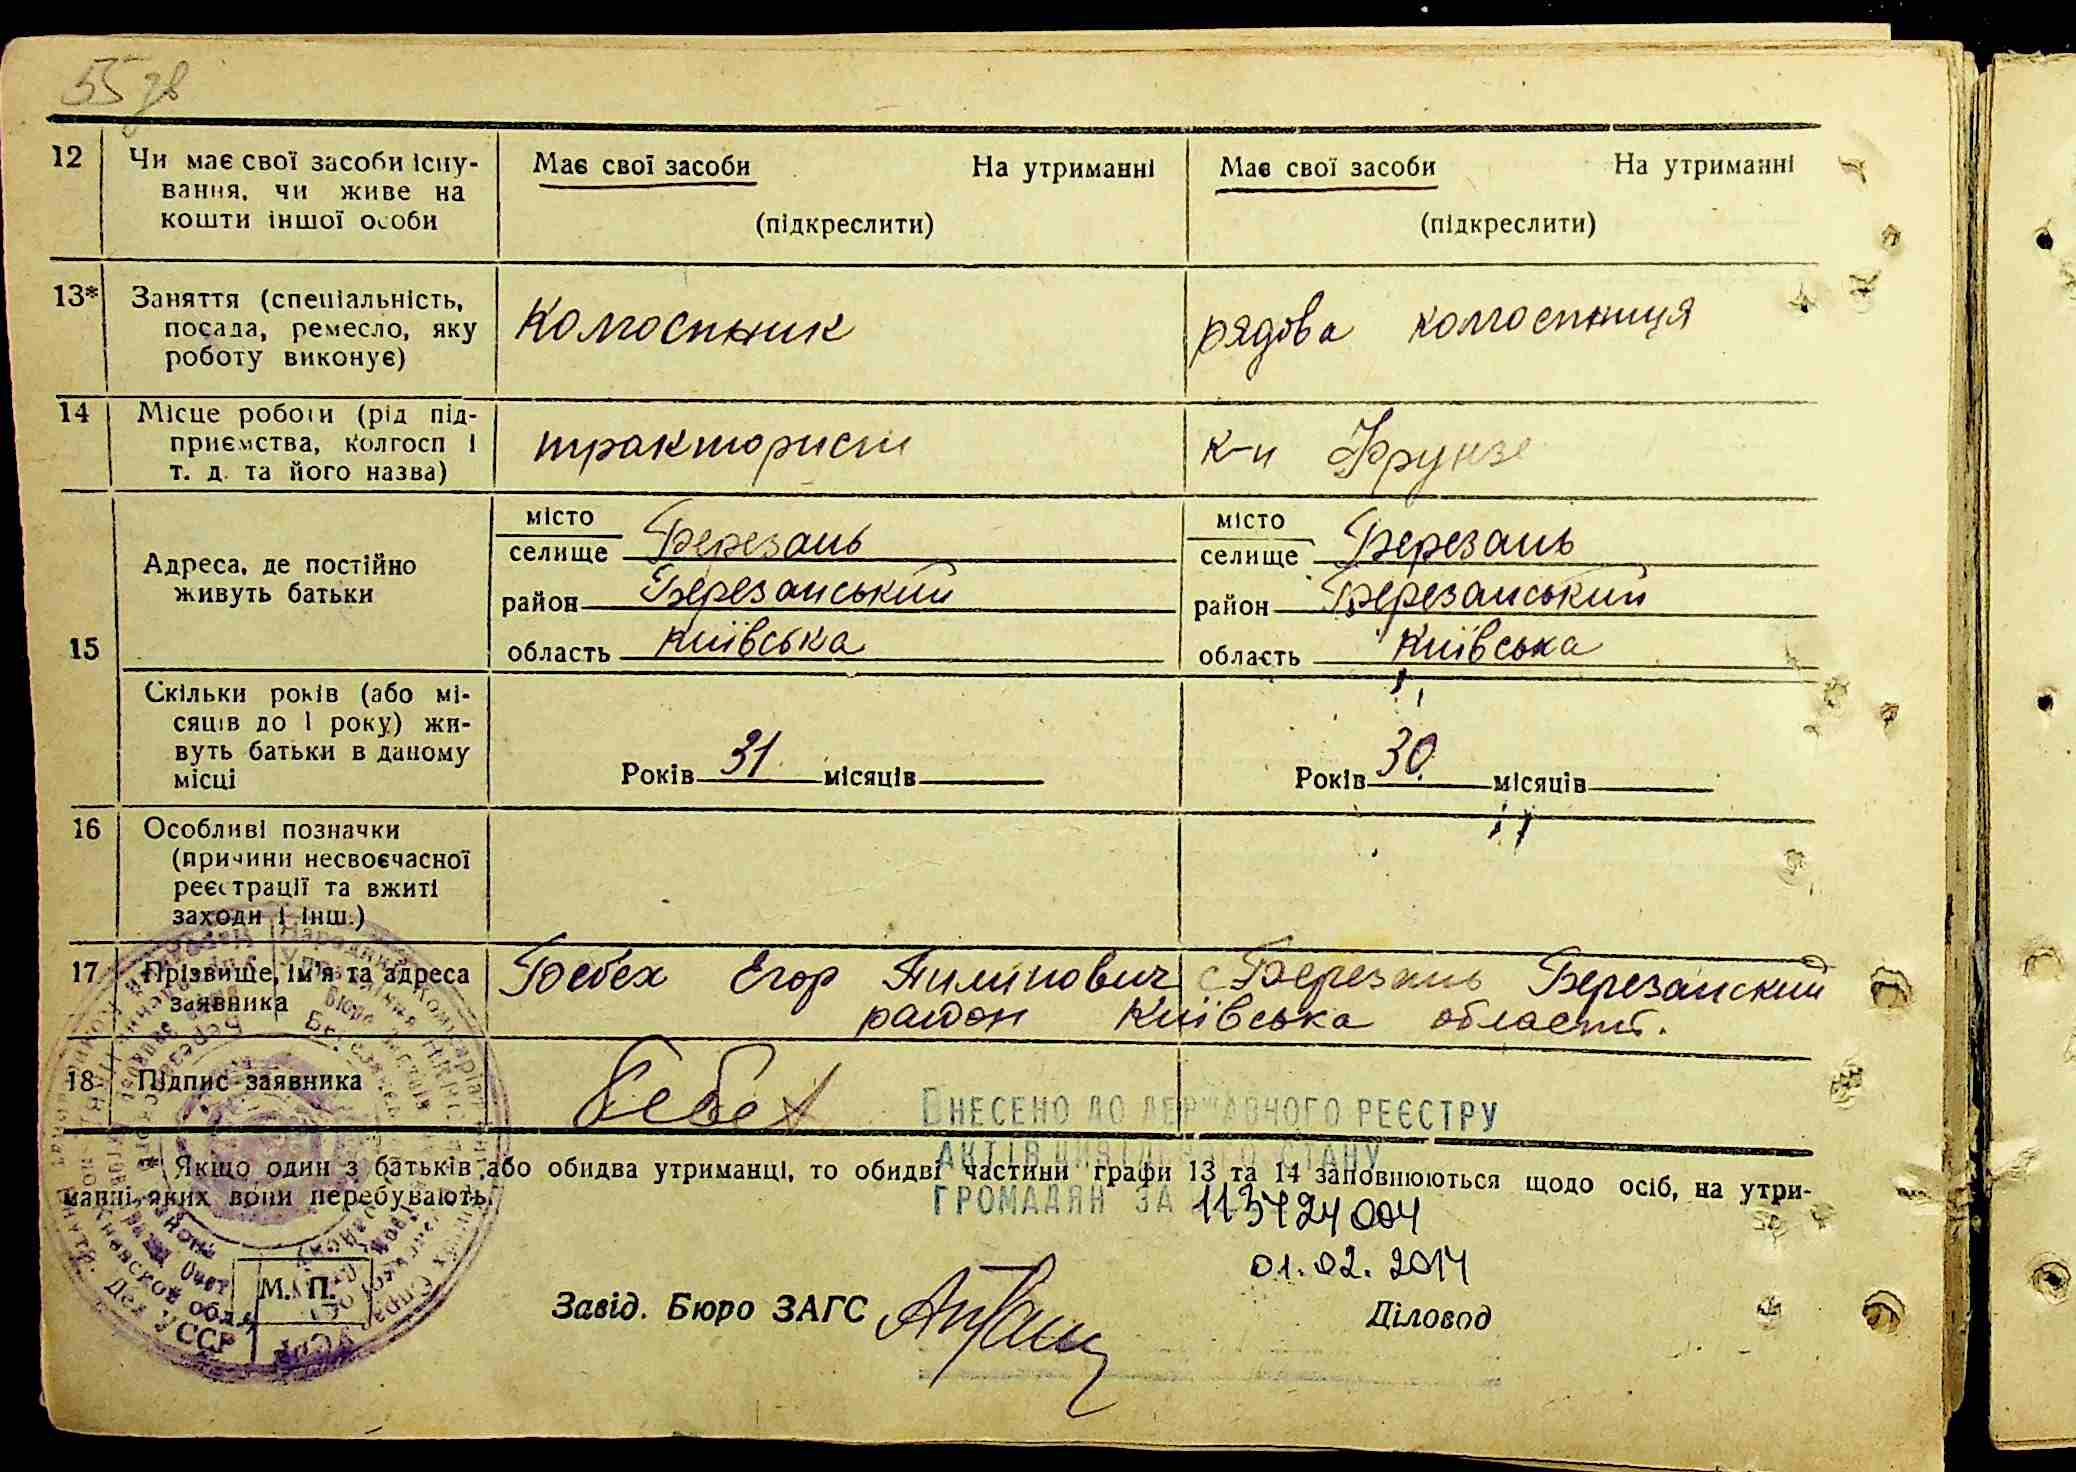 55 зв
12 Чи має свої засоби існу- Має свої засоби На утриманні Має свої засоби На утриманні
вання, чи живе на
кошти іншої особи (підкреслити) (підкреслити)
13* Заняття (спеціальність,
посада, ремесло, яку Колгоспник рядова колгоспниця
роботу виконує)
14 Місце роботи (рід під-
приємства, колгосп і тракторист к-п Фрунзе
т. д. та його назва)
15
Адреса, де постійно
живуть батьки
місто місто
селище Березань селище Березань
район Березанський район Березанський
область Київська область Київська
Скільки років (або мі-
сяців до 1 року) жи-
вуть батьки в даному
місці Років 31 місяців Років 30 місяців
16 Особливі позначки
(причини несвоєчасної
реєстрації та вжиті
заходи і інш.)
17 Прізвище, ім'я та адреса Бебех Егор Пилипович с Березань Березанский
заявника район Київська область.
18 Підпис заявника Бебех
ВНЕСЕНО ДО ДЕРЖАВНОГО РЕЄСТРУ
АКТІВ ЦИВІЛЬНОГО СТАНУ
* Якщо один з батьків або обидва утриманці, то обидві частини графи 13 та 14 заповнюються щодо осіб, на утри-
манні яких вони перебувають.
ГРОМАДЯН ЗА 113724004
01.02.2014
М. П.
Завід. Бюро ЗАГС Діловод